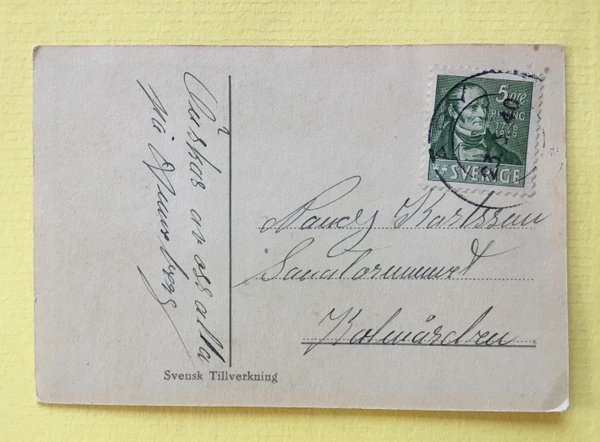 Önskas av oss alla
på
5 öre
SVERIGE
23 5 40
Nancy Karlsson
Sanatoriumet
Kolmården
Svensk Tillverkning